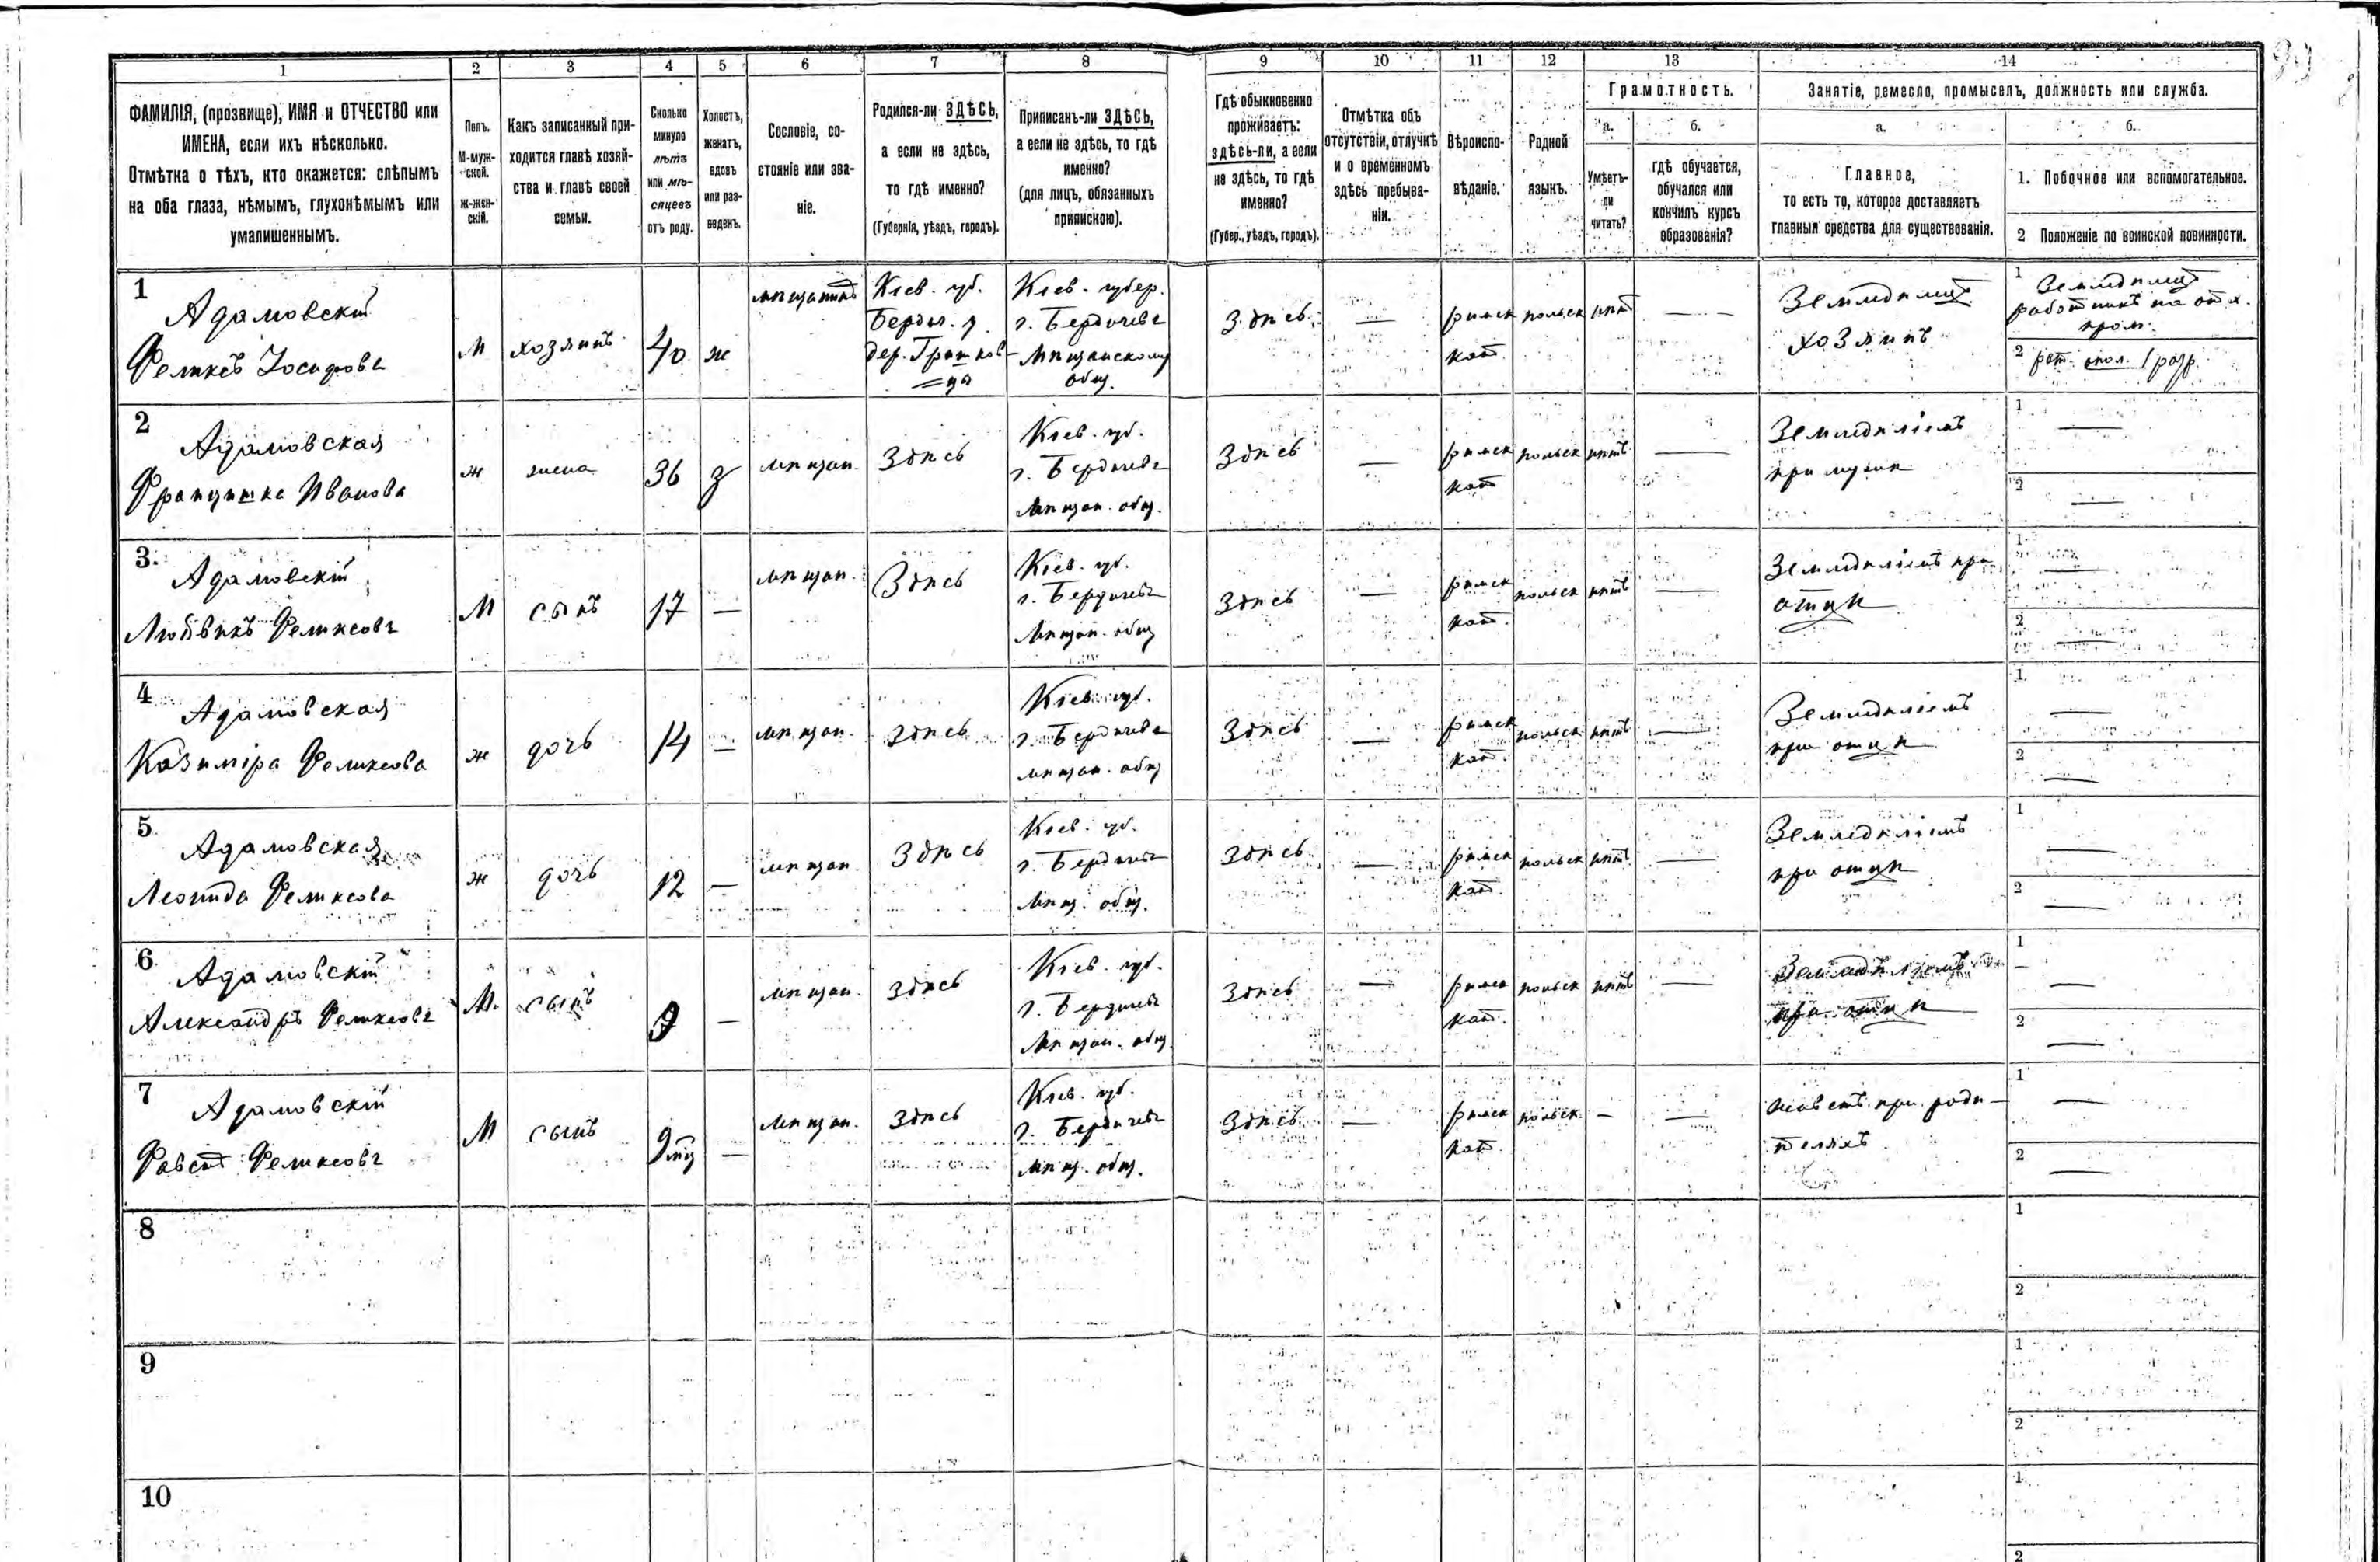 99
1 2 3 4 5 6 7 8 9 10 11 12 13 14
ФАМИЛІЯ, (прозвище), ИМЯ и ОТЧЕСТВО или
ИМЕНА, если ихъ нѣсколько.
Отмѣтка о тѣхъ, кто окажется: слѣпымъ
на оба глаза, нѣмымъ, глухонѣмымъ или
умалишеннымъ.
Полъ.
М-муж-
ской.
Ж-жен-
скій.
Какъ записанный при-
ходится главѣ хозяй-
ства и главѣ своей
семьи.
Сколько
минуло
лѣтъ
или мѣ-
сяцевъ
отъ роду.
Холостъ,
женатъ,
вдовъ
или раз-
веденъ.
Сословіе, со-
стояніе или зва-
ніе.
Родился-ли ЗДѢСЬ,
а если не здѣсь,
то гдѣ именно?
(Губернія, уѣздъ, городъ).
Приписанъ-ли ЗДѢСЬ,
а если не здѣсь, то гдѣ
именно?
(для лицъ, обязанныхъ
припискою).
Гдѣ обыкновенно
проживаетъ:
здѣсь-ли, а если
не здѣсь, то гдѣ
именно?
(Губер., уѣздъ, городъ).
Отмѣтка объ
отсутствіи, отлучкѣ
и о временномъ
здѣсь пребыва-
ніи.
Вѣроиспо-
вѣданіе.
Родной
языкъ.
Грамотность.
а.
Умѣетъ-
ли
читать?
б.
гдѣ обучается,
обучался или
кончилъ курсъ
образованія?
Занятіе, ремесло, промыселъ, должность или служба.
а.
Главное,
то есть то, которое доставляетъ
главныя средства для существованія.
б.
1. Побочное или вспомогательное.
2 Положеніе по воинской повинности.
1
Адамовскій
Феликсъ Іосифовъ
М
хозяинъ
40
ж
мѣщанинъ
Кіев. губ.
Бердич. у.
дер.
Кіев. губер.
г. Бердичевъ
Мѣщанскому
общ.
Здѣсь
—
римск
кат.
польск
нѣтъ
—
Земледѣлецъ
хозяинъ
1 Земледѣлец
работникъ на
пром.
2 рат. опол. 1 разр
2
Адамовская
Францишка Иванова
ж
жена
36
з
мѣщан.
Здѣсь
Кіев. губ.
г. Бердичевъ
Мѣщан. общ.
Здѣсь
—
римск
кат
польск
нѣтъ
—
Земледѣліемъ
при мужѣ
1 —
2 —
3.
Адамовскій
Людвикъ Феликсовъ
М
сынъ
17
—
мѣщан.
Здѣсь
Кіев. губ.
г. Бердичевъ
Мѣщан. общ
Здѣсь
—
римск
кат.
польск
нѣтъ
—
Земледѣліемъ при
отцѣ
1 —
2 —
4
Адамовская
Казиміра Феликсова
ж
дочь
14
—
мѣщан.
здѣсь
Кіев. губ.
г. Бердичевъ
мѣщан. общ
Здѣсь
—
римск
кат.
польск
нѣтъ
—
Земледѣліемъ
при отцѣ
1 —
2 —
5
Адамовская
Леонида Феликсова
ж
дочь
12
—
мѣщан.
Здѣсь
Кіев. губ.
г. Бердичевъ
Мѣщ. общ.
Здѣсь
—
римск
кат.
польск
нѣтъ
—
Земледѣліемъ
при отцѣ
1 —
2 —
6
Адамовскій
Александръ Феликсовъ
М.
сынъ
9
—
мѣщан.
здѣсь
Кіев. губ.
г. Бердичевъ
Мѣщан. общ
Здѣсь
—
римск
кат.
польск
нѣтъ
—
Земледѣліемъ
при отцѣ
1 —
2 —
7
Адамовскій
Фавстъ Феликсовъ
М
сынъ
9 мц
—
мѣщан.
здѣсь
Кіев. губ.
г. Бердичевъ
Мѣщ. общ.
Здѣсь
—
римск
кат.
польск.
—
—
живетъ при роди-
теляхъ
1 —
2 —
8
1
2
9
1
2
10
1
2